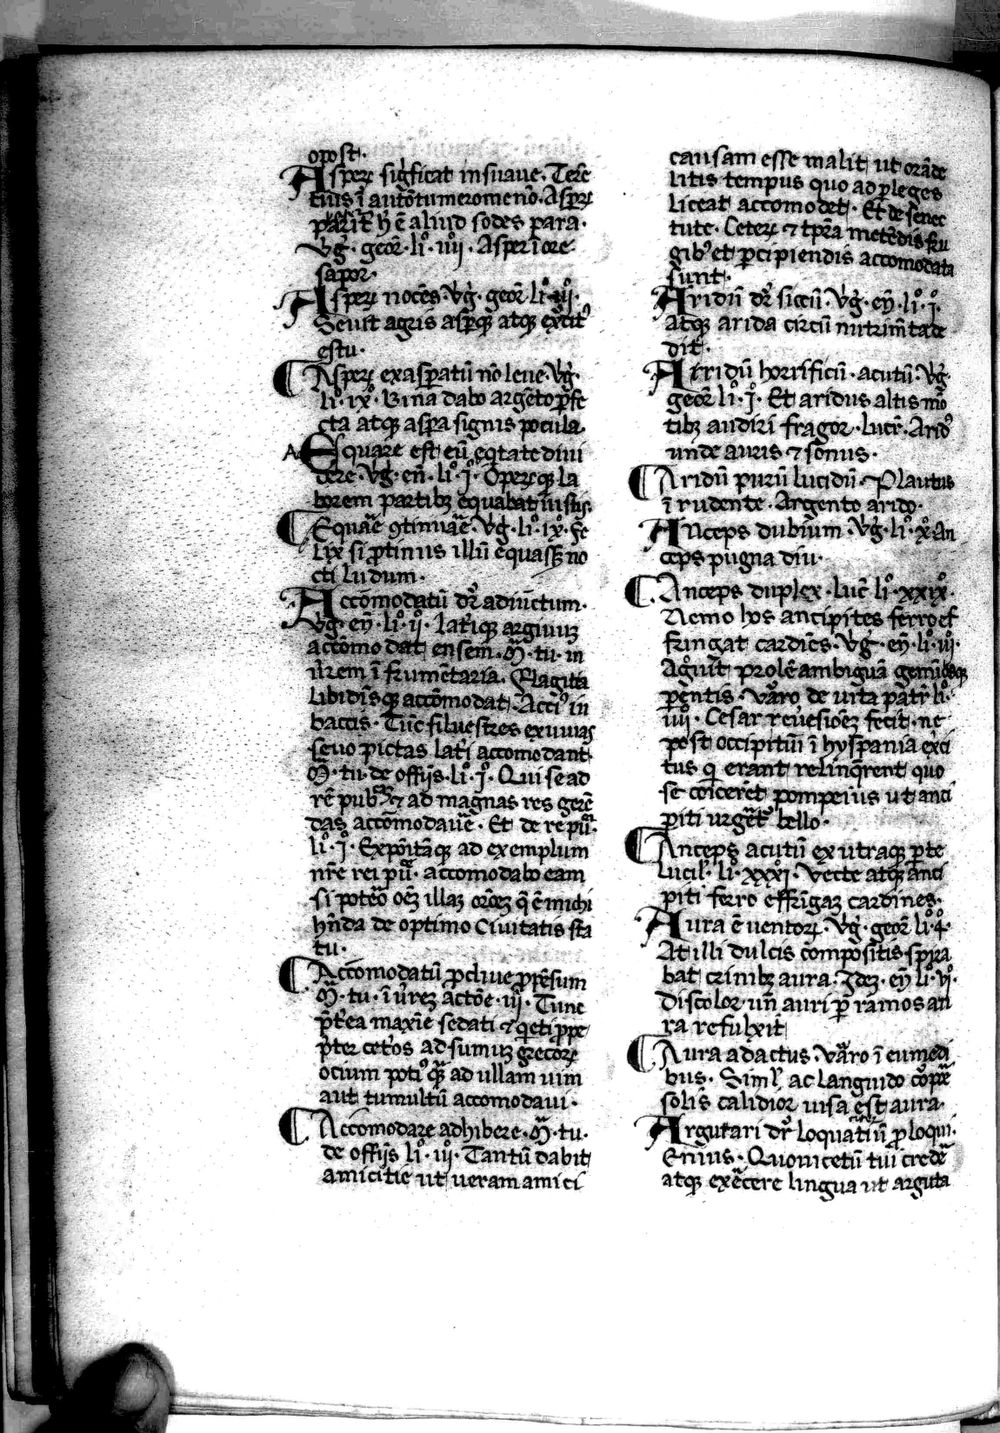 opost·
Asperꝝ sig̃ficat insuaue· Terẽ
tius ĩ autõtumeromeno· Asperꝝ
hꝰ ẽ aliud sodes para·
Vg̃· geor̃· li͂· iiij· Asper ĩ ore
sapor·
Asperꝝ nocẽs· Vg̃· geor̃ li͂· iij·
Seuit agris asperqꝫ atqꝫ
estu·
Asperꝝ exasꝑatũ nõ leue· Vg̃·
li͂· ix͂· Bina dabo argẽto ꝑfe
cta atqꝫ asꝑa signis pocula·
Equare est eũ eqtate diui
dere· Vg̃· eñ· li͂· j͂· Operꝝqꝫ la
borem partibꝫ equabat iustis·
Equãe ꝯtinuãe· Vg̃· li͂· ix͂· Fe
lix si ꝓtinus illũ equasꝫ no
cti ludum·
Accõmodatũ dr̃ adiũctum·
Vg̃· eñ· li͂· ij͂· lateriqꝫ argiuuꝫ
accõmodat ensem· M̃· tu· in
ũrem ĩ frumẽtaria· Flagitia
libidisqꝫ accõmodat· Acciꝰ in
baccis· Tũc siluestres exuuias
leuo pictas laterĩ accomodant·
M̃· tu· de offijs· li͂· j͂· Qui se ad
rẽ pub̃ & ad magnas res gerẽ
das accõmodauẽ· Et de re pũ·
li͂· j͂· Expõitãqꝫ ad exemplum
nr̃e rei pũ· accomodabo eam
si poteõ oẽꝫ illaꝫ or̃oeꝫ q̃ ẽ michi
hñda de optimo Ciuitatis sta
tu·
Accõmodatũ ꝓcliue ꝓpẽsum
M̃· tu· ĩ ũrꝫ actõe· iij͂· Tunc
p̃tea maxĩe sedati & q̃eti ꝓpe
p̃ter cetos ad sumuꝫ grecorꝝ
ocium potiꝰ q̃ꝫ ad ullam uim
aut tumultũ accomodaui·
Accomodare adhibere· M̃· tu·
de offijs li͂· iij͂· Tantũ dabit
amicitie ut ueram amici
causam esse malit ut orãde
litis tempus quo ad ꝑ leges
liceat accomodet· Et de senec
tute· Ceterꝝ & tp̃ra metẽdis fru
gibꝰ et ꝑcipiendis accomodata
sunt·
Aridũ dr̃ siccũ· Vg̃· eñ· li͂· j͂·
atqꝫ arida circũ nutrim̃ta de
dit·
Arridũ horrificũ· acutũ· Vg̃·
geor̃ li͂· j͂· Et aridus altis mõ
tibꝫ audiri fragor· lucr̃· Aridꝰ
unde auris & sonus·
Aridũ purũ lucidũ· Plautus
ĩ rudente· Argento arido·
Anceps dubium· Vg̃· li͂· x͂· An
ceps pugna diu·
Anceps duplex· luc̃ li͂· xxix͂·
Nemo hos ancipites ferro ef
fringat cardiẽs· Vg̃· eñ· li͂· iij͂·
Aguit prolẽ ambiguã geminosqꝫ
parentis· Varo de uita patr̃ li͂·
iiij͂· Cesar reuersioeꝫ fecit· ne
post occipitũ ĩ hyspania
tus q̃ erant relinq̃rent quo
se coiceret pompeius ut anci
piti urgẽtꝰ bello·
Anceps acutũ ex utraqꝫ parte
Lucil̃· li͂· xxxj͂· Vecte atqꝫ anci
piti ferro effrĩgaꝫ cardines·
Aura ẽ uentorꝝ· Vg̃· geor̃ li͂· 4͂·
At illi dulcis compõsitis spira
bat crinibꝫ aura· Ideꝫ· eñ· li͂· vj͂·
Discolor uñ auri ꝑ ramos au
ra refulxit
Aura adactus· Varo ĩ eumedi
bus· Siml̃ ac languido corpe
solis calidior uisa est aura·
Argutari dr̃ loquatiũ ꝓloqui·
Enius· Quonicetũ tui credẽ
atqꝫ exẽcere lingua ut arguta